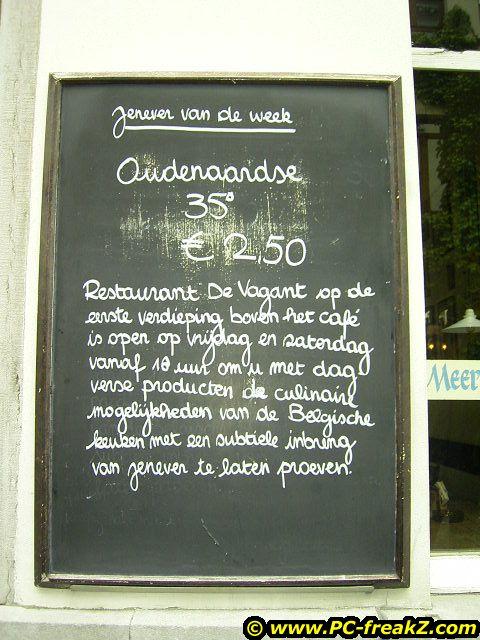 Jenever van de week
Oudenaardse
35°
€ 2,50
Restaurant De Vagant op de
eerste verdieping boven het café
is open op vrijdag en zaterdag
vanaf 18 uur om u met dag
verse producten de culinaire
mogelijkheden van de Belgische
keuken met een subtiele inbreng
van jenever te laten proeven.
Meer
© www.PC-freakZ.com